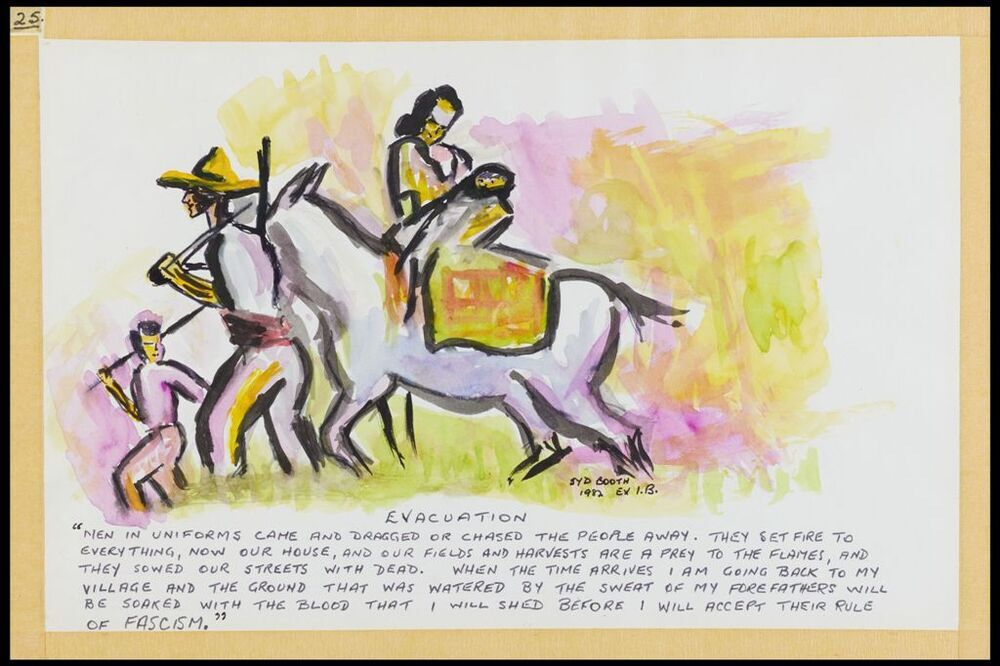 25.
SYD BOOTH
1982 EX I.B.
EVACUATION
"MEN IN UNIFORMS CAME AND DRAGGED OR CHASED THE PEOPLE AWAY. THEY SET FIRE TO
EVERYTHING, NOW OUR HOUSE, AND OUR FIELDS AND HARVESTS ARE A PREY TO THE FLAMES, AND
THEY SOWED OUR STREETS WITH DEAD. WHEN THE TIME ARRIVES I AM GOING BACK TO MY
VILLAGE AND THE GROUND THAT WAS WATERED BY THE SWEAT OF MY FOREFATHERS WILL
BE SOAKED WITH THE BLOOD THAT I WILL SHED BEFORE I WILL ACCEPT THEIR RULE
OF FASCISM."